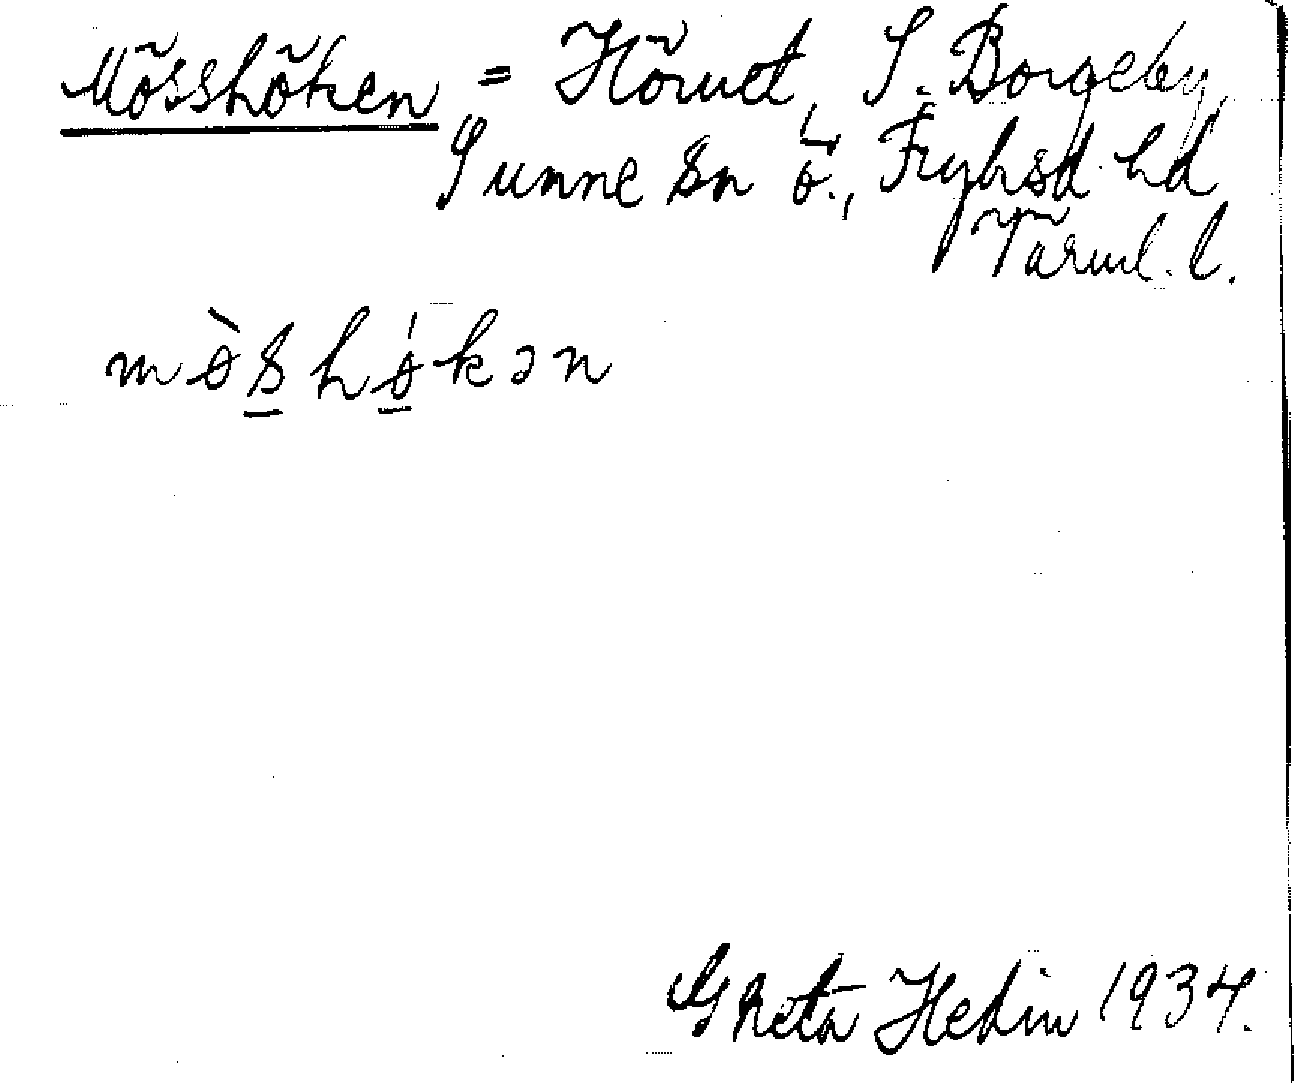 Mösshöken = Hörnet, S. Borgeby,
Sunne sn ö., Fryksd. hd
Värml. l.
mø̀s̲hǿ̲kən
Greta Hedin 1934.